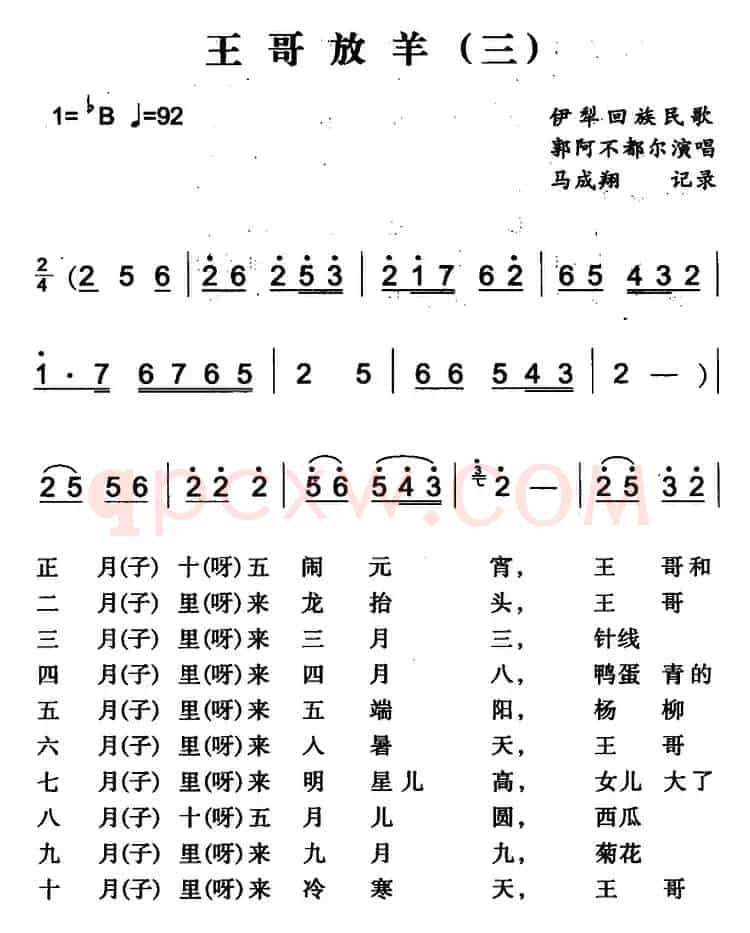 王哥放羊(三)
1=♭B ♩=92
伊犁回族民歌
郭阿不都尔演唱
马成翔 记录
2/4 (2 5 6 | 2̇6 2̇5̇3̇ | 2̇1̇7 62̇ | 65 432 |
1̇·7 6765 | 2 5 | 66 543 | 2 — ) |
25 56 | 2̇2̇ 2̇ | 5̇6̇ 5̇4̇3̇ | 3̇ 2̇ — | 2̇5̇ 3̇2̇ |
qpcxw.COM
正 月(子) 十(呀)五 闹 元 宵, 王 哥和
二 月(子) 里(呀)来 龙 抬 头, 王 哥
三 月(子) 里(呀)来 三 月 三, 针线
四 月(子) 里(呀)来 四 月 八, 鸭蛋 青的
五 月(子) 里(呀)来 五 端 阳, 杨 柳
六 月(子) 里(呀)来 人 暑 天, 王 哥
七 月(子) 里(呀)来 明 星儿 高, 女儿 大了
八 月(子) 十(呀)五 月 儿 圆, 西瓜
九 月(子) 里(呀)来 九 月 九, 菊花
十 月(子) 里(呀)来 冷 寒 天, 王 哥